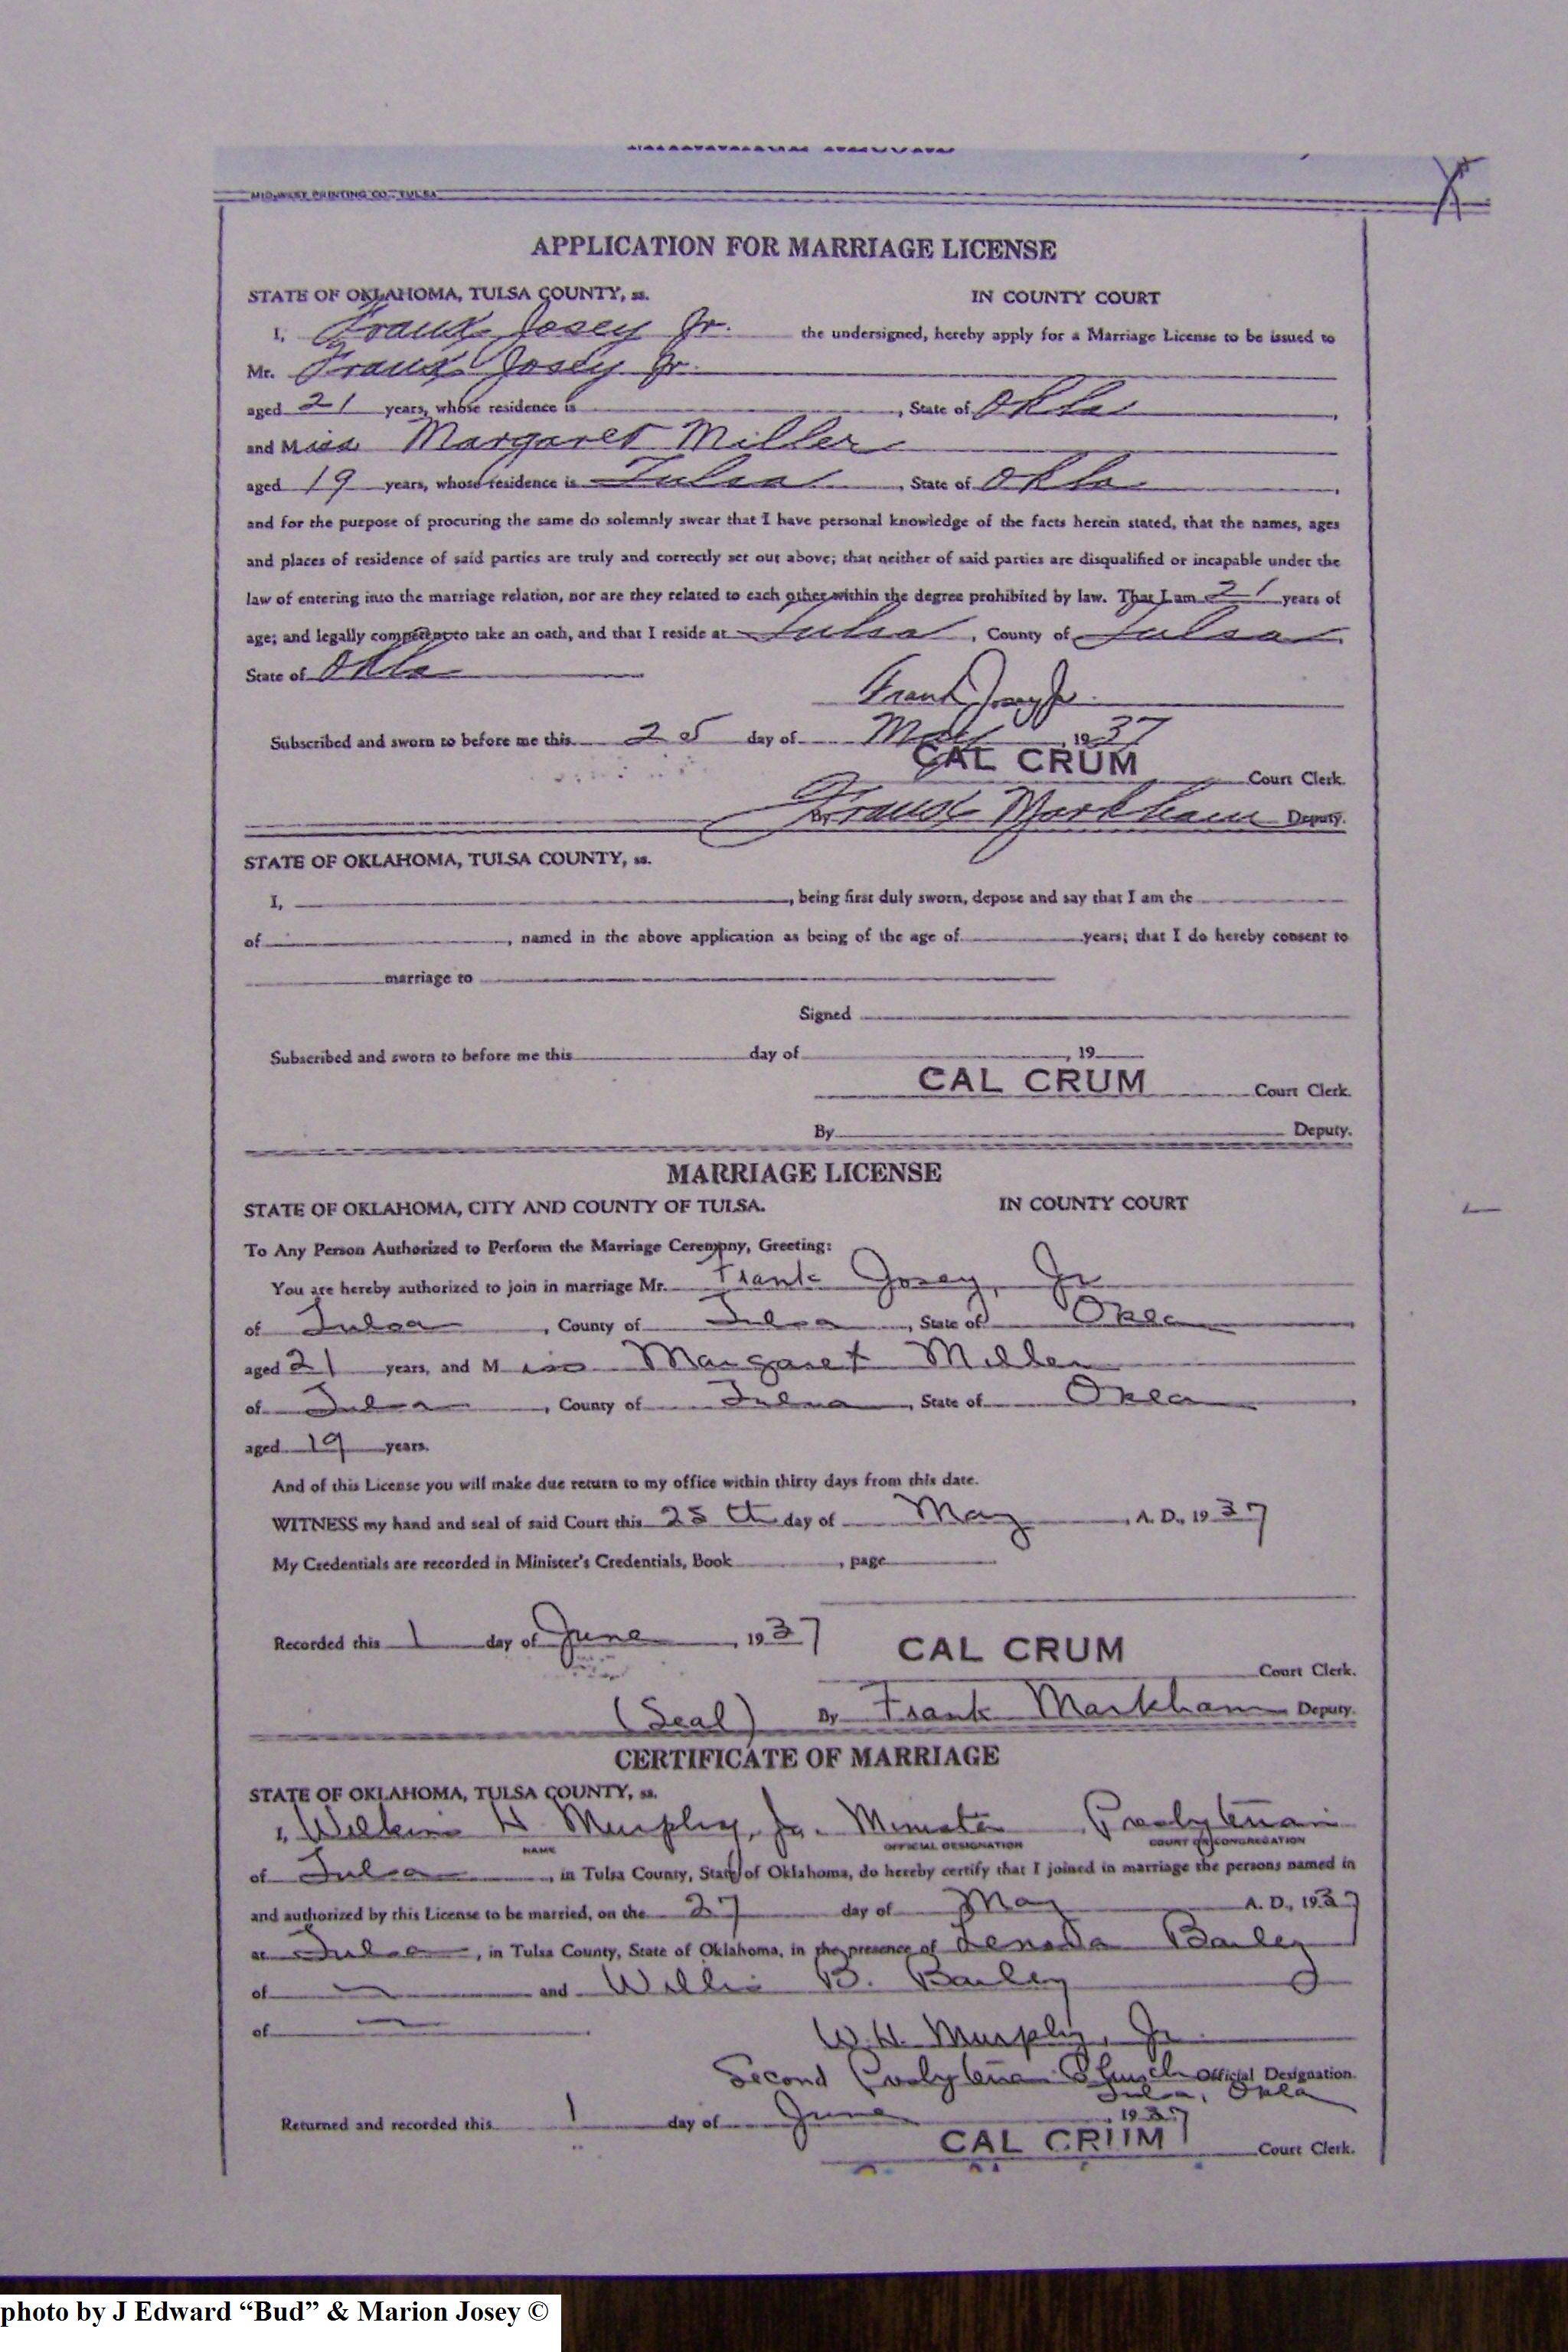 MID-WEST PRINTING CO., TULSA
APPLICATION FOR MARRIAGE LICENSE
STATE OF OKLAHOMA, TULSA COUNTY, ss. IN COUNTY COURT
I, Frank Josey Jr. the undersigned, hereby apply for a Marriage License to be issued to
Mr. Frank Josey Jr.
aged 21 years, whose residence is , State of Okla
and Miss Margaret Miller
aged 19 years, whose residence is Tulsa , State of Okla
and for the purpose of procuring the same do solemnly swear that I have personal knowledge of the facts herein stated, that the names, ages
and places of residence of said parties are truly and correctly set out above; that neither of said parties are disqualified or incapable under the
law of entering into the marriage relation, nor are they related to each other within the degree prohibited by law. That I am 21 years of
age; and legally competent to take an oath, and that I reside at Tulsa , County of Tulsa
State of Okla
Frank Josey Jr.
Subscribed and sworn to before me this 25 day of May , 1937
CAL CRUM Court Clerk.
By Frank Markham Deputy.
STATE OF OKLAHOMA, TULSA COUNTY, ss.
I, , being first duly sworn, depose and say that I am the
of , named in the above application as being of the age of years; that I do hereby consent to
marriage to
Signed
Subscribed and sworn to before me this day of , 19
CAL CRUM Court Clerk.
By Deputy.
MARRIAGE LICENSE
STATE OF OKLAHOMA, CITY AND COUNTY OF TULSA. IN COUNTY COURT
To Any Person Authorized to Perform the Marriage Ceremony, Greeting:
You are hereby authorized to join in marriage Mr. Frank Josey, Jr
of Tulsa , County of Tulsa , State of Okla
aged 21 years, and Miss Margaret Miller
of Tulsa , County of Tulsa , State of Okla
aged 19 years.
And of this License you will make due return to my office within thirty days from this date.
WITNESS my hand and seal of said Court this 25th day of May , A. D., 1937
My Credentials are recorded in Minister's Credentials, Book , page
Recorded this 1 day of June , 1937 CAL CRUM
Court Clerk.
(Seal) By Frank Markham Deputy.
CERTIFICATE OF MARRIAGE
STATE OF OKLAHOMA, TULSA COUNTY, ss.
I, H Murphy, Jr. Minister Presbyterian
NAME OFFICIAL DESIGNATION COURT OR CONGREGATION
of Tulsa , in Tulsa County, State of Oklahoma, do hereby certify that I joined in marriage the persons named in
and authorized by this License to be married, on the 27 day of May A. D., 1937
at Tulsa , in Tulsa County, State of Oklahoma, in the presence of Bailey
of and Willis B. Bailey
of
W. H. Murphy, Jr.
Second Presbyterian Church Official Designation.
Tulsa, Okla
Returned and recorded this 1 day of June , 1937
CAL CRUM Court Clerk.
photo by J Edward “Bud” & Marion Josey ©